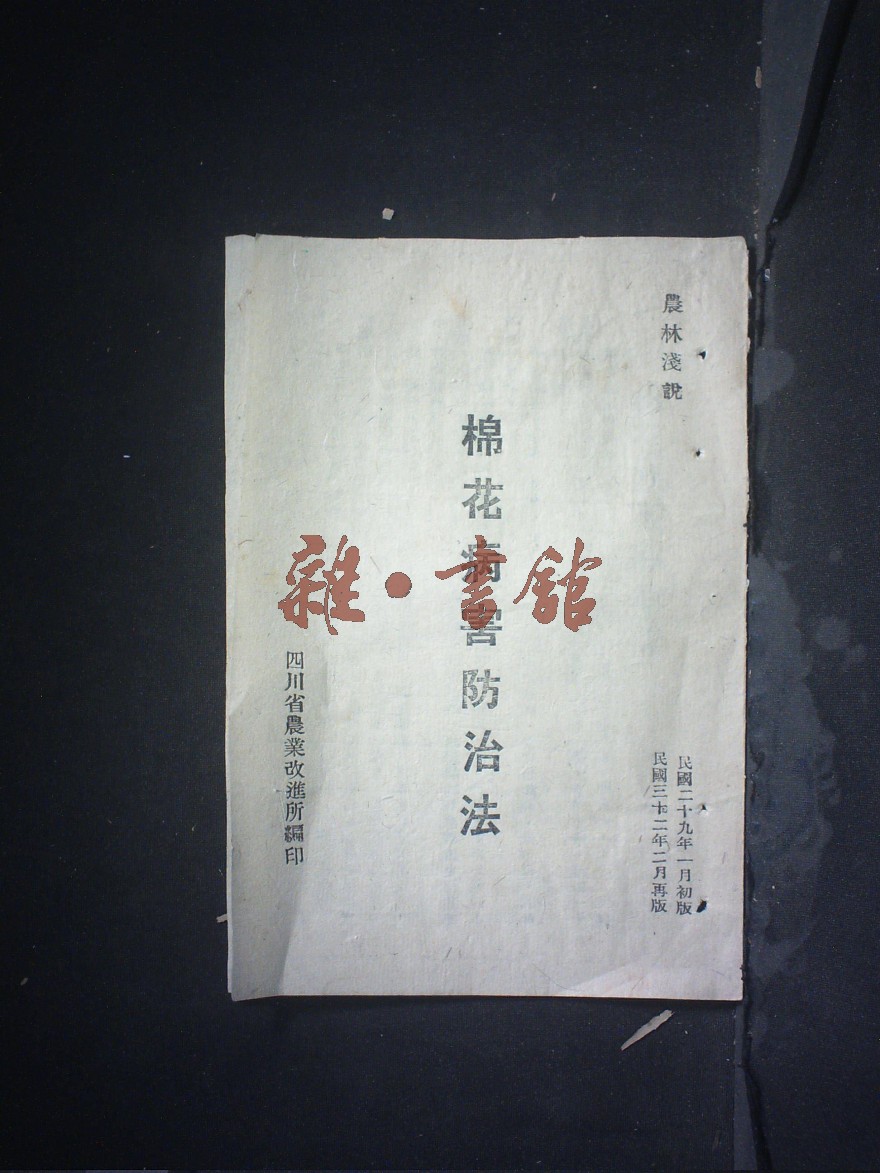 農林淺說
民國二十九年一月初版
民國三十二年二月再版
棉花病害防治法
四川省農業改進所編印
雜·書館